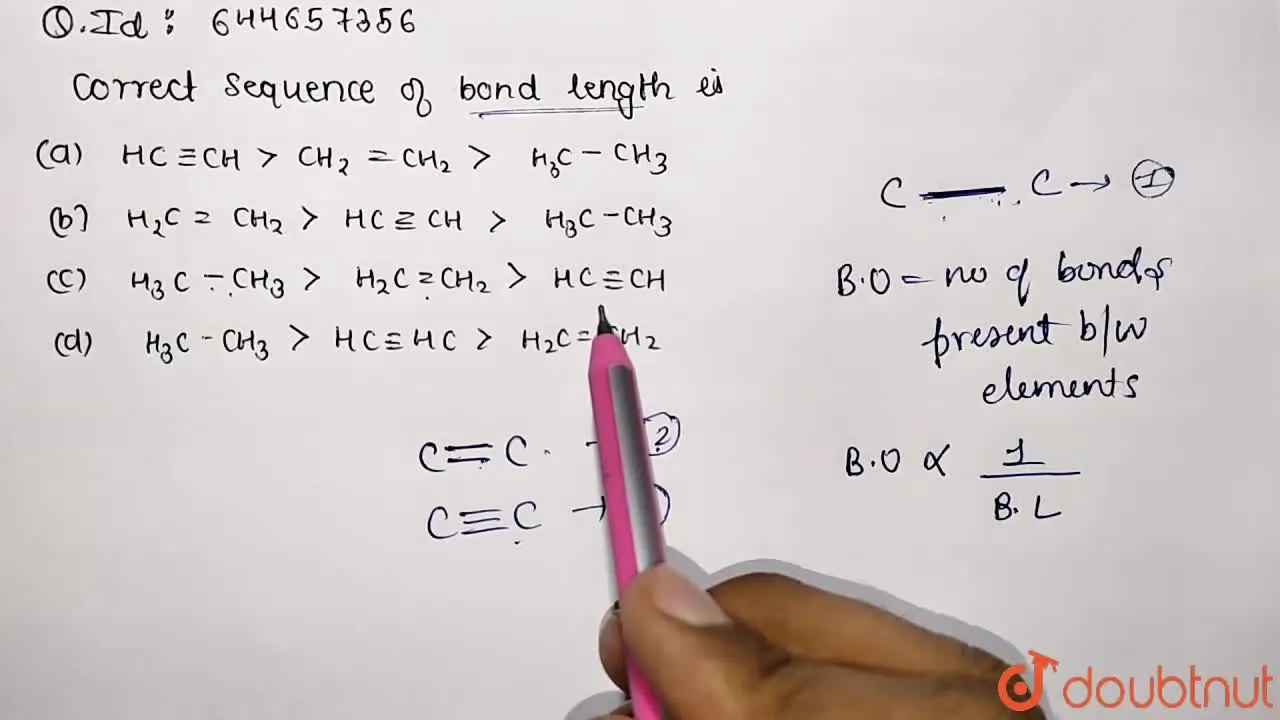 Q.Id : 644657356
Correct Sequence of bond length is
(a) HC ≡ CH > CH2 = CH2 > H3C - CH3
(b) H2C = CH2 > HC ≡ CH > H3C - CH3
(c) H3C - CH3 > H2C = CH2 > HC ≡ CH
(d) H3C - CH3 > HC ≡ HC > H2C = CH2
C = C → 2
C ≡ C →
C — C → 1
B.O = no of bonds
present b/w
elements
B.O ∝ 1 / B.L
doubtnut